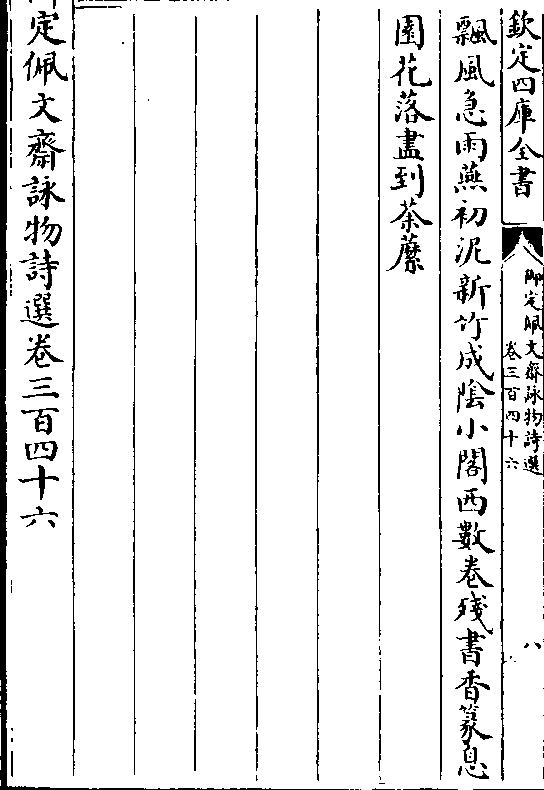 欽定四庫全書
御定佩文齋詠物詩選
卷三百四十六
八
飄風急雨燕初泥新竹成陰小閣西數卷殘書香篆息
園花落盡到荼蘼
御定佩文齋詠物詩選卷三百四十六